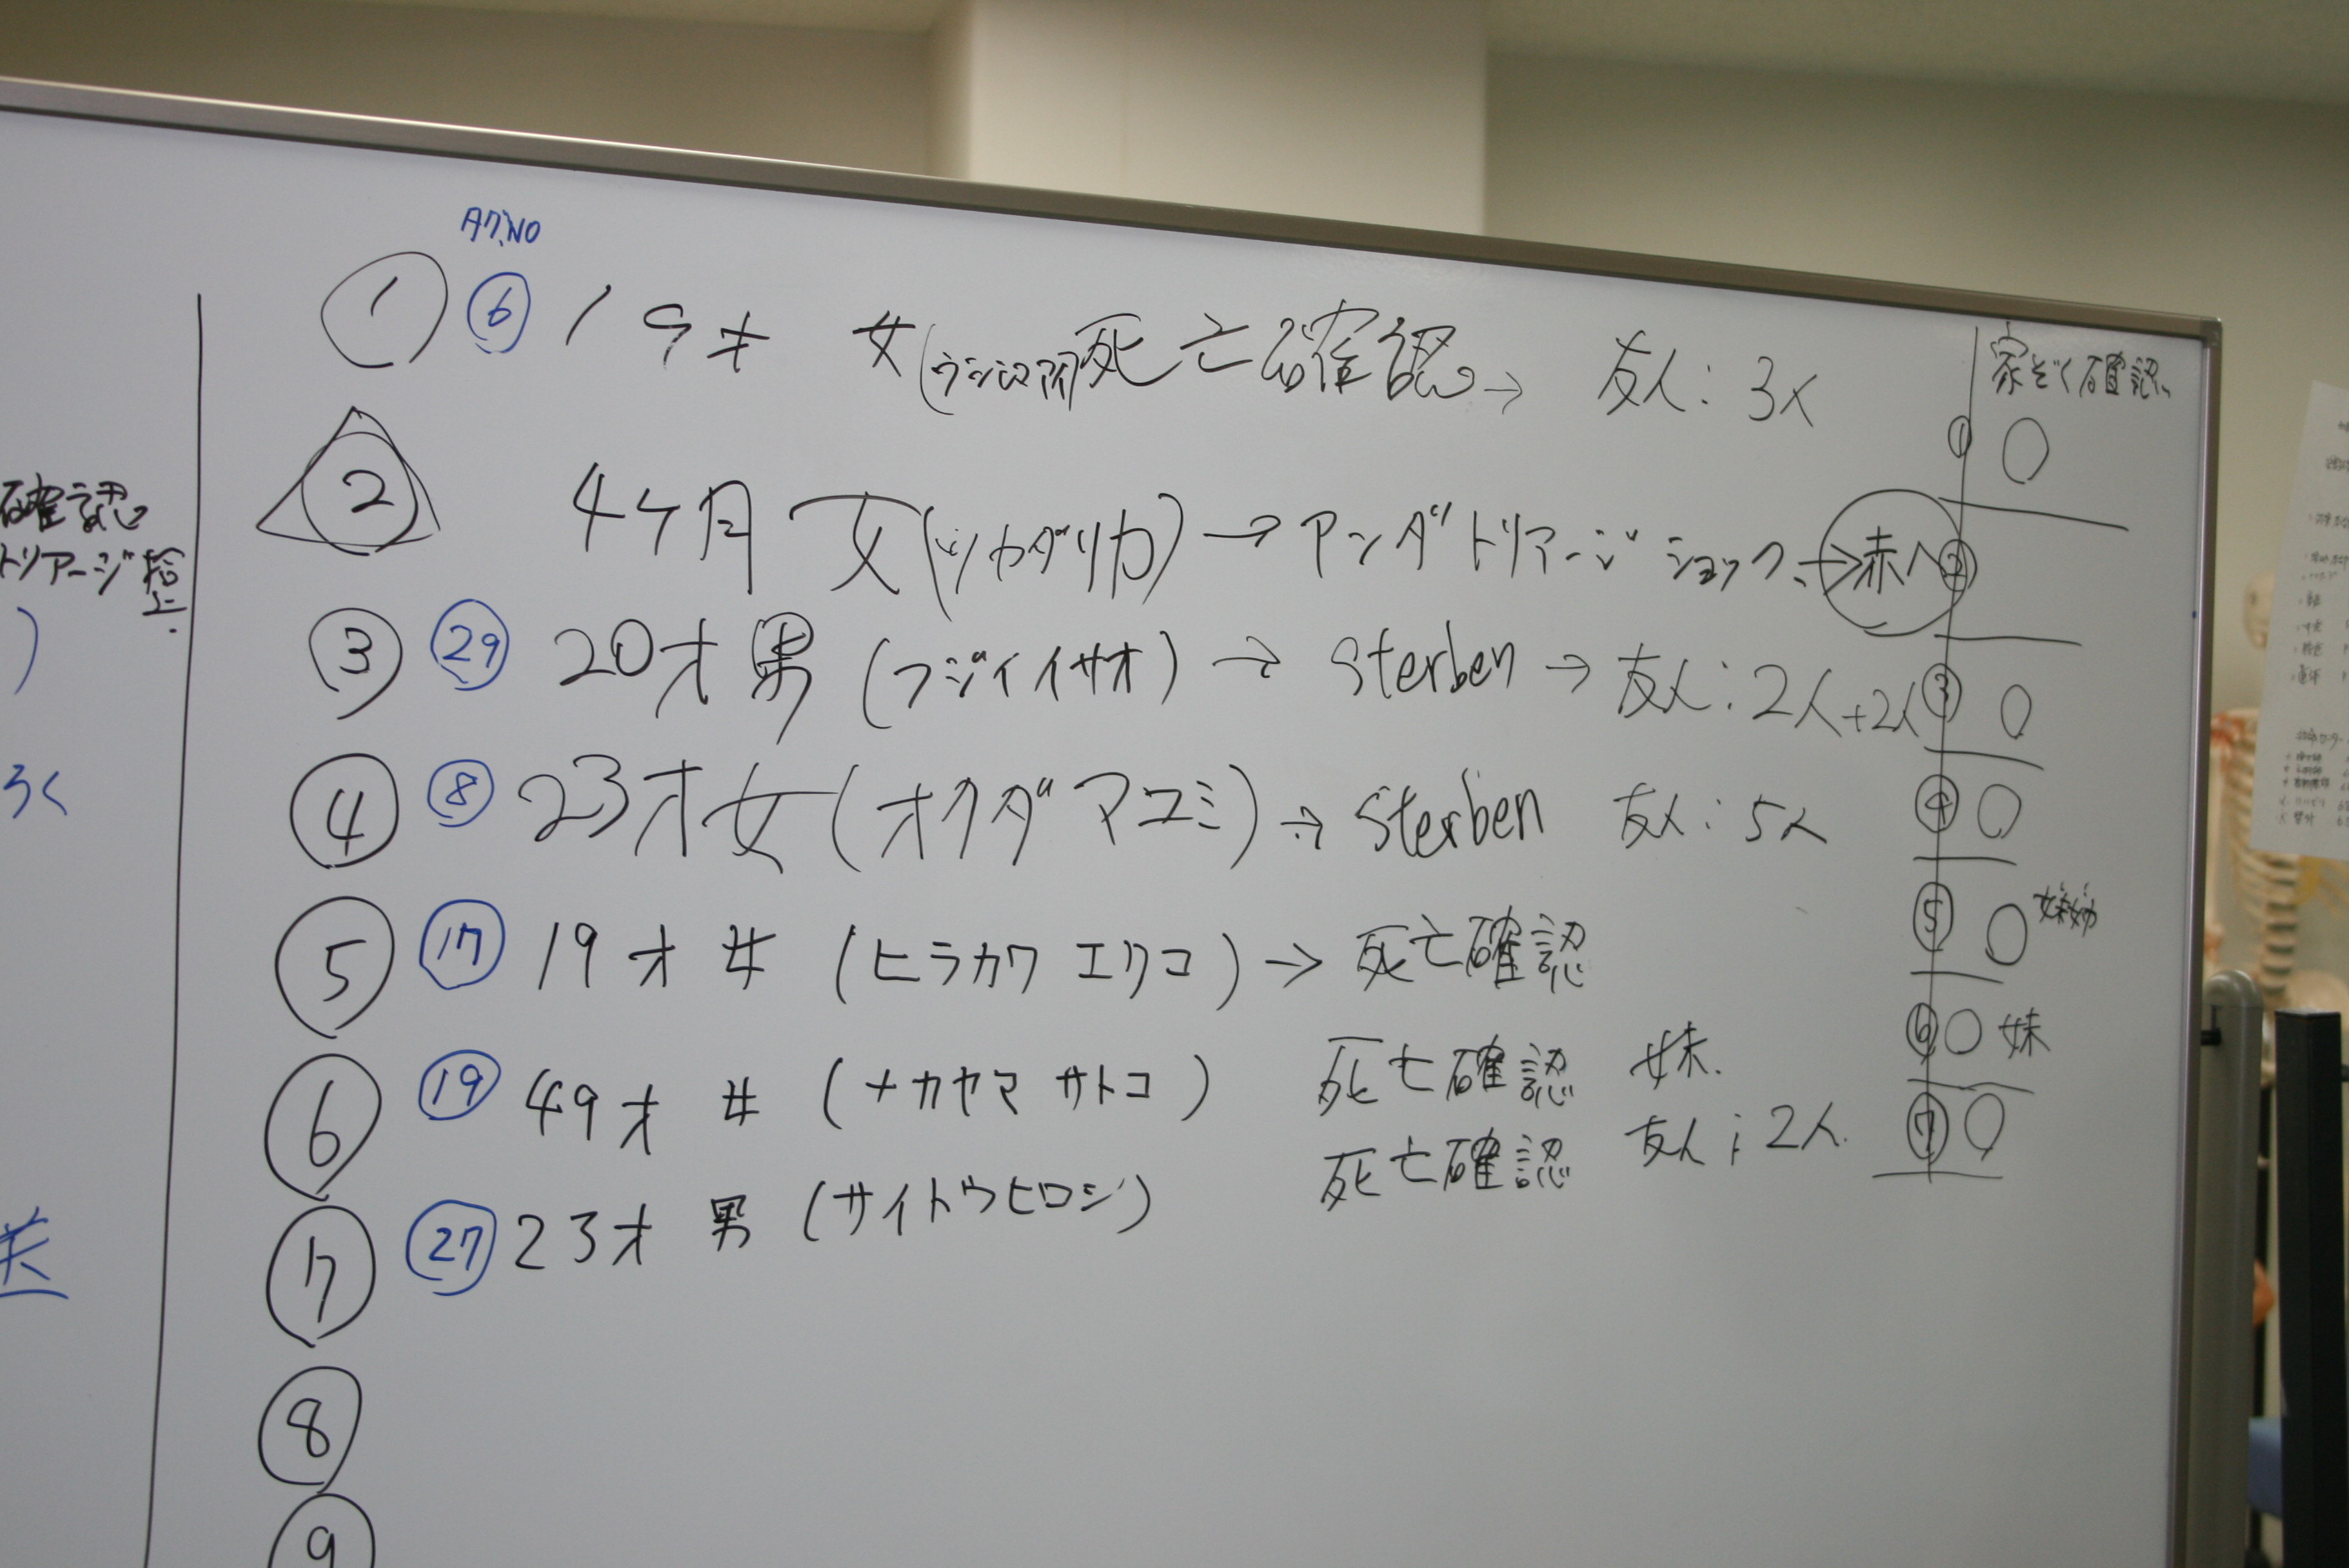 タグNO
① ⑥ 19才 女 死亡確認→ 友人:3人
② 4ケ月 女(ツカダリカ)→アンダートリアージ ショック、→赤へ
③ ㉙ 20才 男 (フジイイサオ) → sterben → 友人:2人+2人
④ ⑧ 23才 女 (オクダ マユミ) → sterben 友人:5人
⑤ ⑰ 19才 女 (ヒラカワ エリコ) → 死亡確認
⑥ ⑲ 49才 女 (ナカヤマ サトコ) 死亡確認 妹.
⑦ ㉗ 23才 男 (サイトウヒロシ) 死亡確認 友人:2人.
⑧
⑨
家ぞく確認
① 〇
②
③ 〇
④ 〇
⑤ 〇
⑥ 〇 妹
⑦ 〇
確認
トリアージ